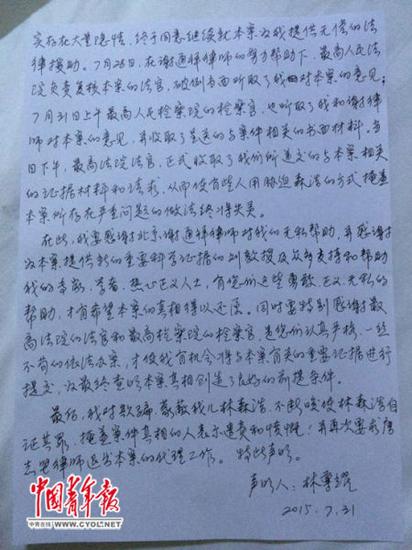 实存在大量隐情,终于同意继续就本案为我提供无偿的法
律援助。7月28日,在谢通祥律师的努力帮助下,最高人民法
院负责复核本案的法官,破例当面听取了我对本案的意见;
7月31日上午最高人民检察院的检察官,也听取了我和谢律
师对本案的意见,并收取了呈送的与案件相关的书面材料。当
日下午,最高法院法官,正式收取了我们所递交的与本案相关
的证据材料和请求,从而使有些人用胁迫森浩的方式掩盖
本案所存在严重问题的做法终将失灵。
在此,我要感谢北京谢通祥律师对我的无私帮助,并感谢
为本案提供新的重要科学证据的刘教授及众多支持和帮助
我的亲朋、学者、热心正义人士,有您们这些勇敢、正义、无私的
帮助,才有希望本案的真相得以还原。同时要特别感谢最
高法院的法官和最高检察院的检察官,是您们认真严格、一丝
不苟的依法办案,才使我有机会得与本案有关的重要证据进行
提交,为最终查明本案真相创造了良好的前提条件。
最后,我对欺骗、蒙蔽我儿林森浩,不断唆使林森浩自
证其罪,掩盖案件真相的人表示遗责和愤慨!并再次要求唐
志坚律师退出本案的代理工作。特此声明。
声明人:林尊耀
2015.7.31
中国青年报
中青在线 WWW.CYOL.NET